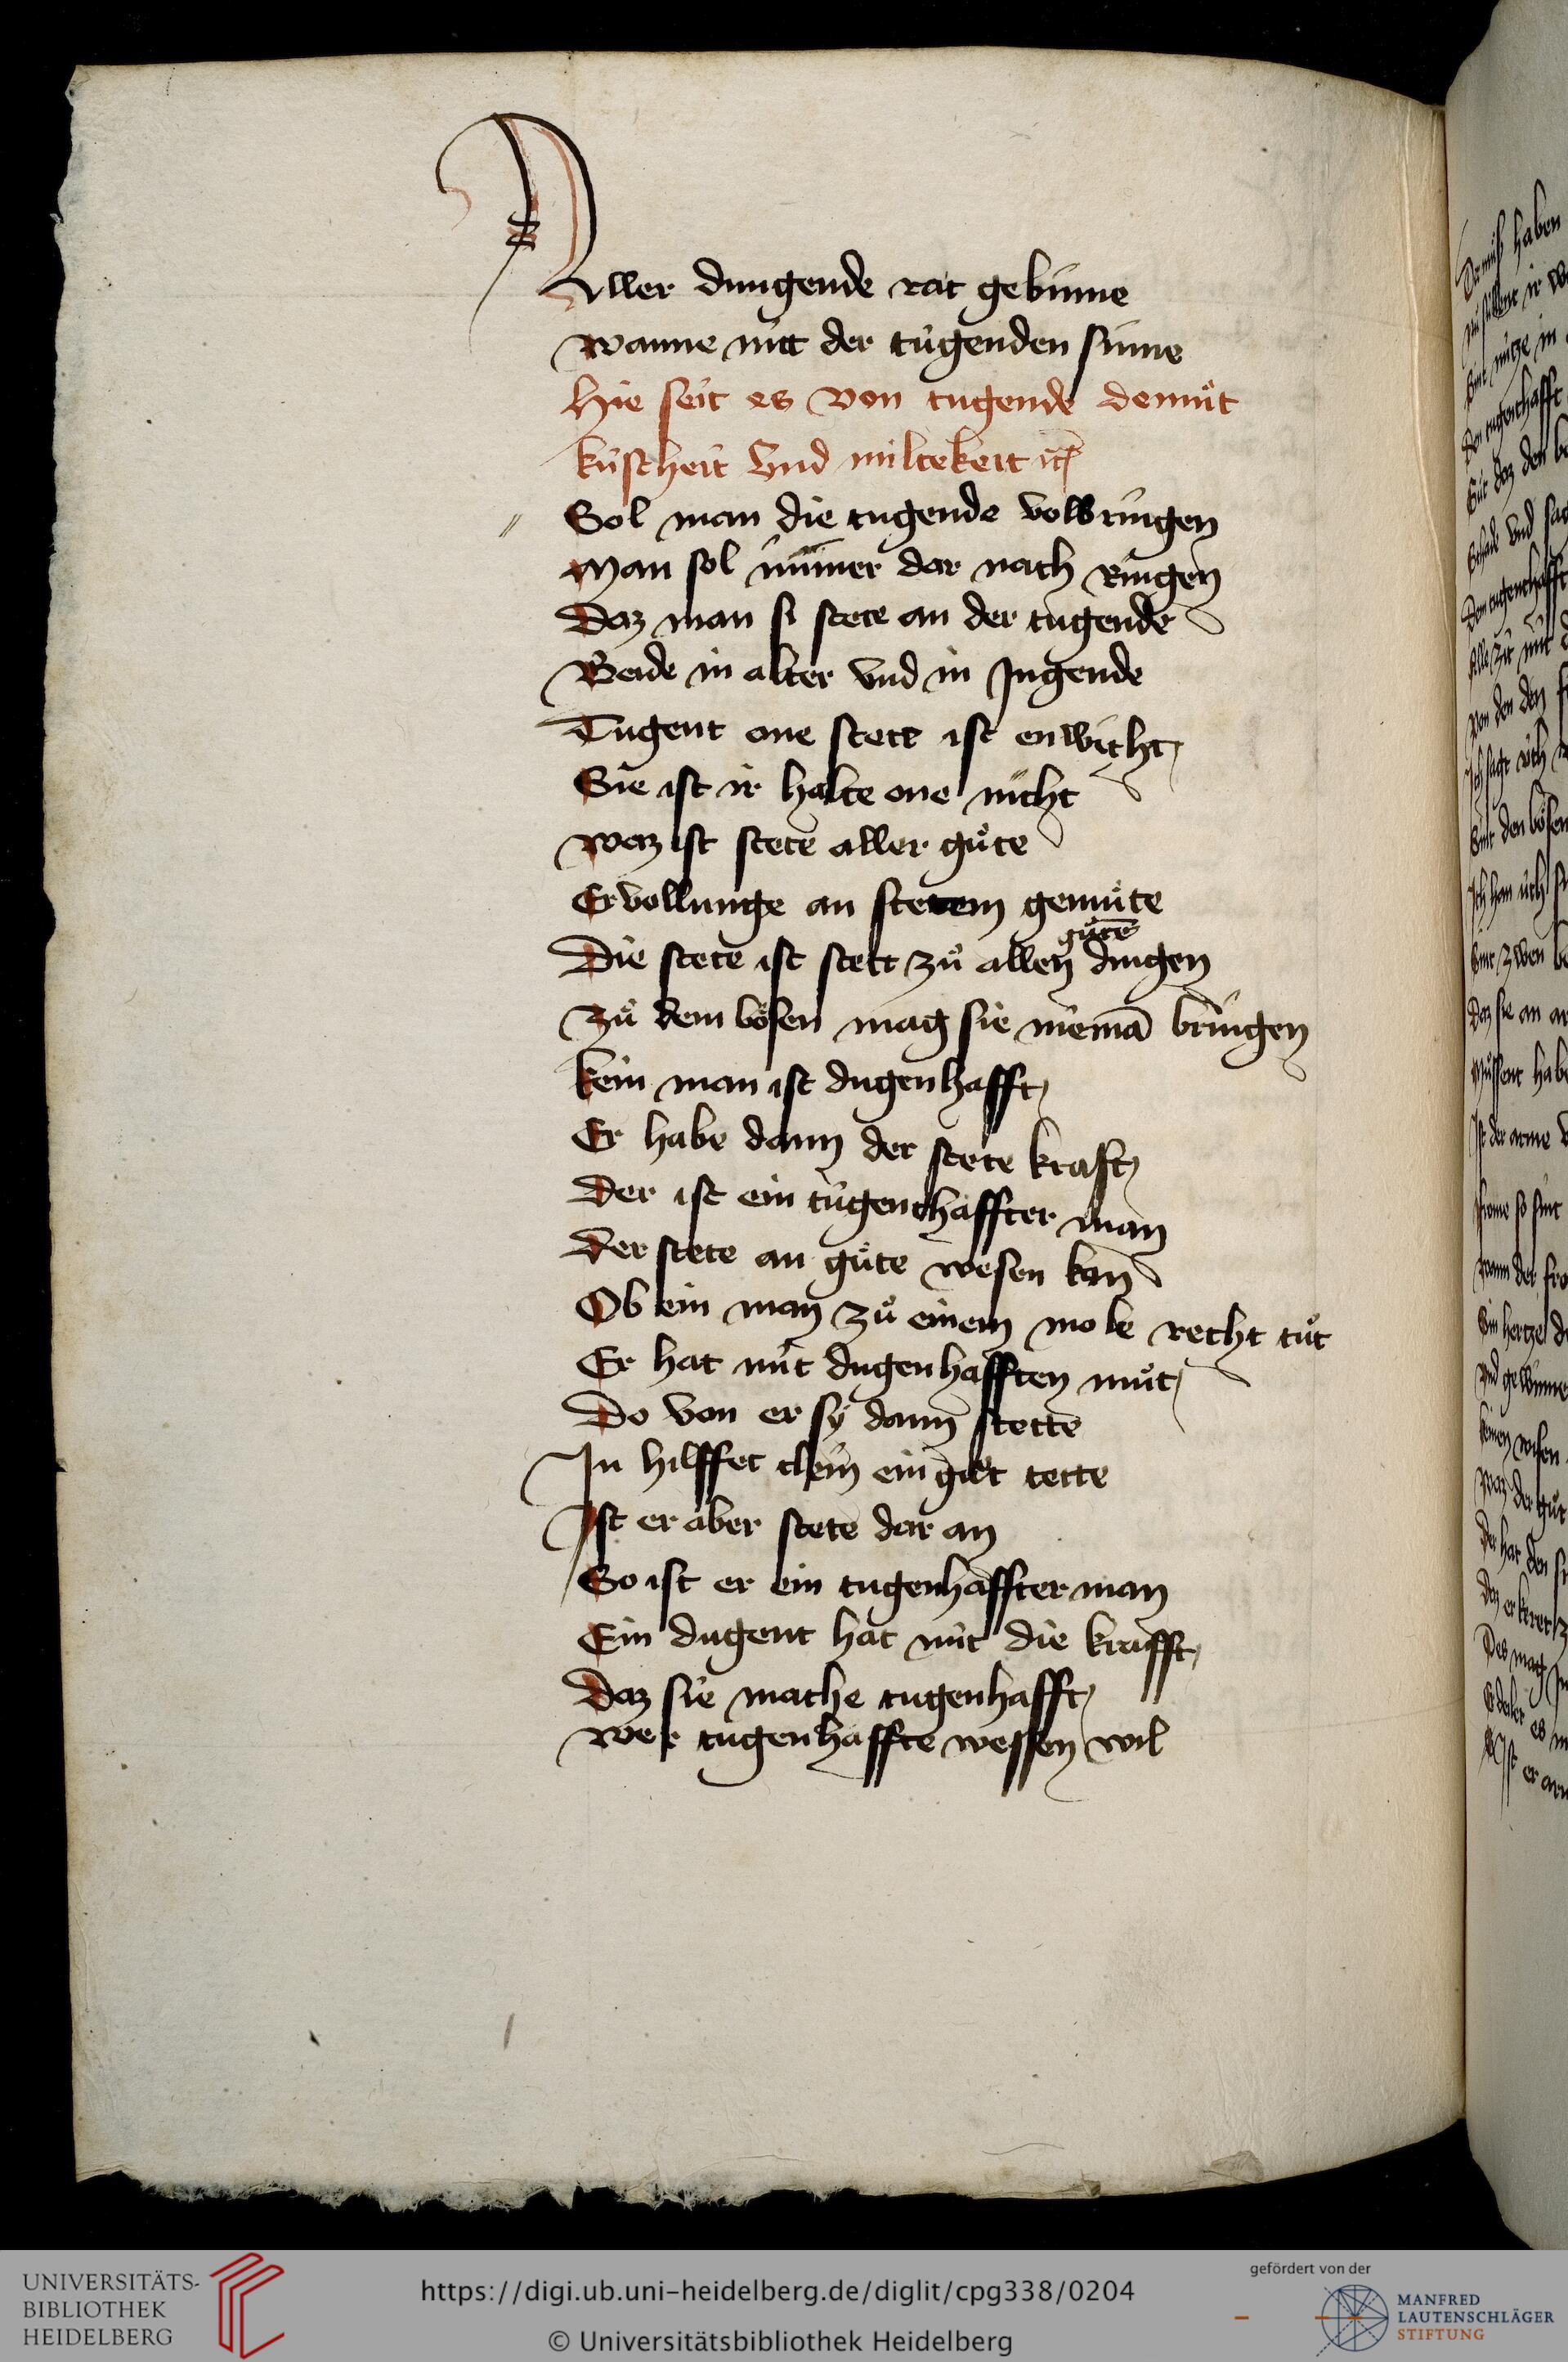 Aller dungende rat gebinne
wanne mit der tugenden sinne
Hie seit es von tugende demuͦt
kuscheit Vnd miltekeit ꝛc
Sol man die tugende volbringen
Man sol ümer dar nach ringen
Daz man si stete an der tugende
Beide in alter vnd in Jugende
Tugent one stete ist enwicht
Sie ist ir halte one nicht
waz ist stete aller guͤte
Ervollunge an stetem gemuͤte
Die stete ist stett zuͦ allen guten dingen
Zuͦ dem boͤsen mag sie niemā bringen
kein man ist dugenhafft
Er habe dann der stete kraft
Der ist ein tugenthaffter man
Der stete an guͤte wesen kan
Ob ein man zuͦ einem mole recht tuͦt
Er hat nit dugenhafften muͦt
Do von er sy dann stette
In hilffet clein ein guͦt tette
Ist er aber stete dar an
So ist er ein tugenhaffter man
Ein dugent hat nit die krafft
Daz sie mache tugenhafft
wer tugenhaffte wessen wil
UNIVERSITÄTS-
BIBLIOTHEK
HEIDELBERG
https://digi.ub.uni-heidelberg.de/diglit/cpg338/0204
© Universitätsbibliothek Heidelberg
gefördert von der
MANFRED
LAUTENSCHLÄGER
STIFTUNG